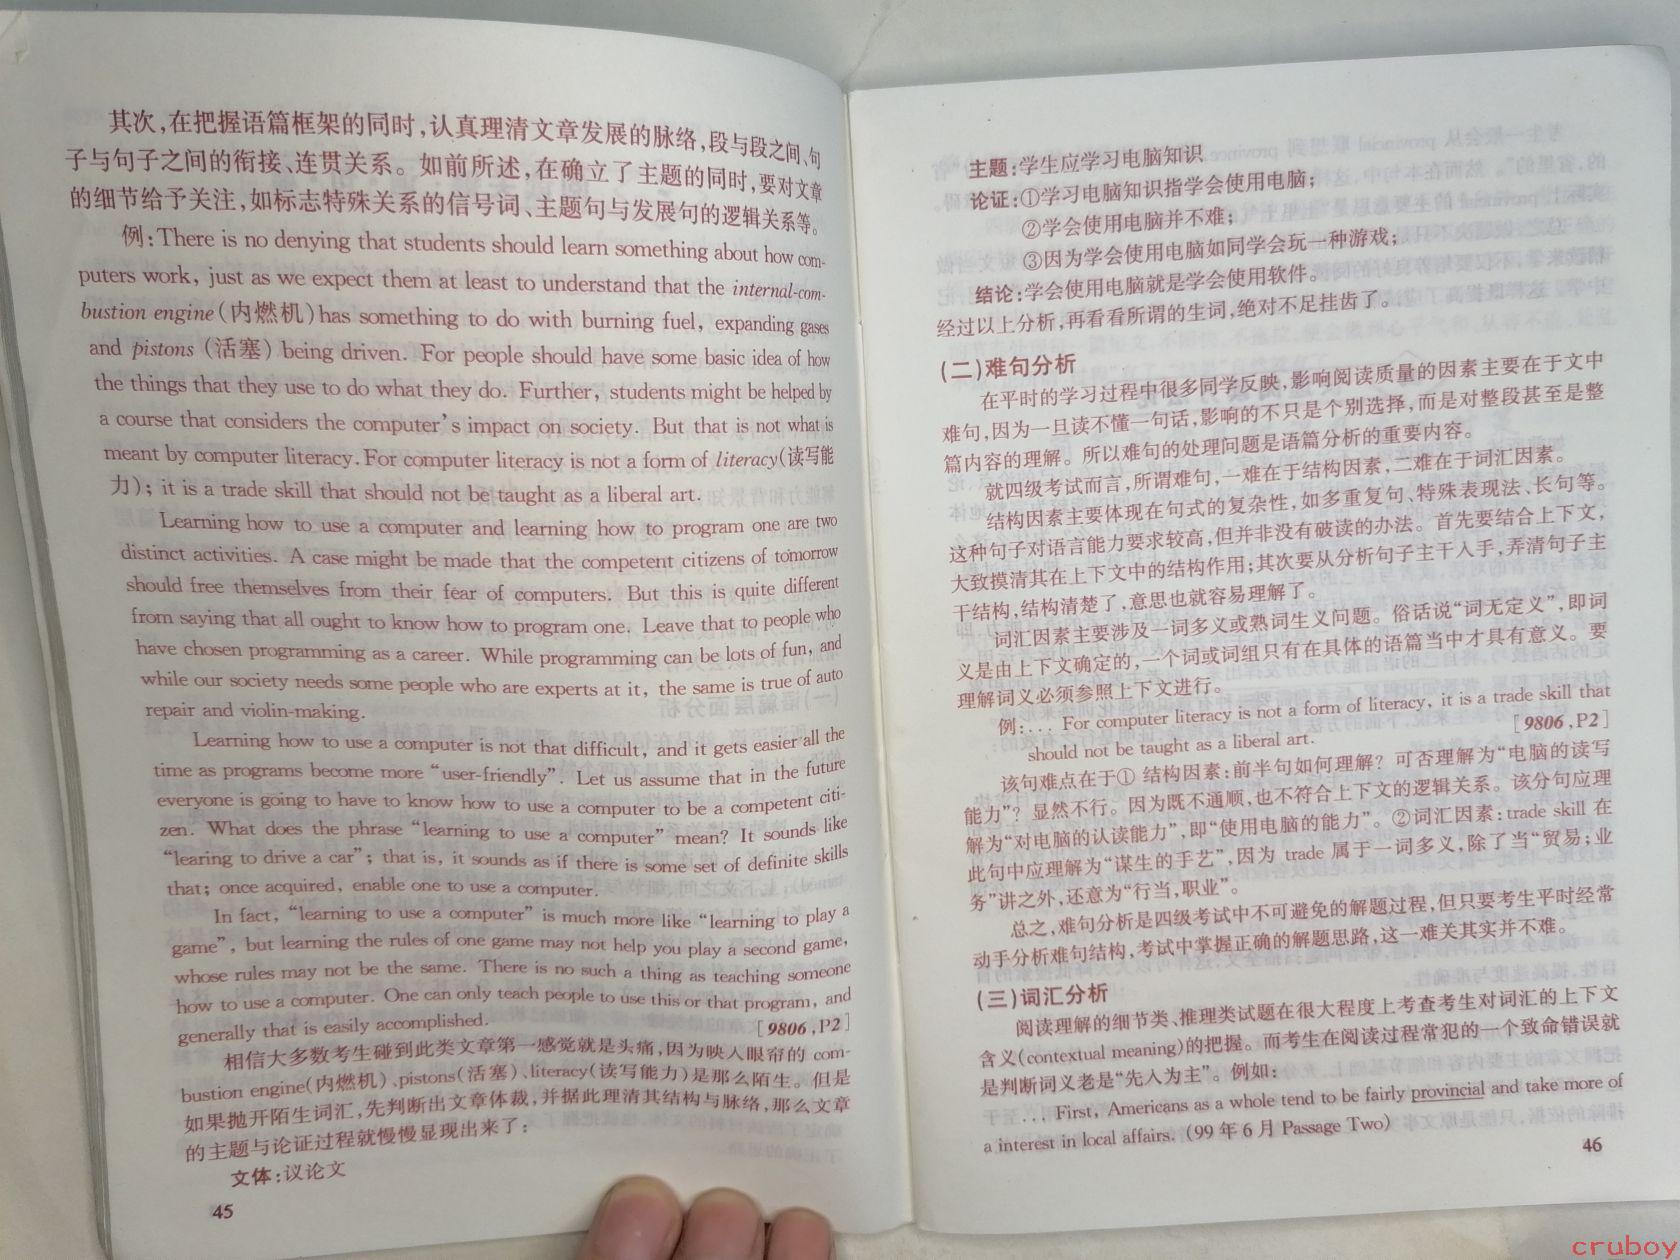 其次,在把握语篇框架的同时,认真理清文章发展的脉络,段与段之间、句
子与句子之间的衔接、连贯关系。如前所述,在确立了主题的同时,要对文章
的细节给予关注,如标志特殊关系的信号词、主题句与发展句的逻辑关系等。
例:There is no denying that students should learn something about how com-
puters work, just as we expect them at least to understand that the internal-com-
bustion engine(内燃机)has something to do with burning fuel, expanding gases
and pistons (活塞) being driven. For people should have some basic idea of how
the things that they use to do what they do. Further, students might be helped by
a course that considers the computer's impact on society. But that is not what is
meant by computer literacy. For computer literacy is not a form of literacy(读写能
力); it is a trade skill that should not be taught as a liberal art.
Learning how to use a computer and learning how to program one are two
distinct activities. A case might be made that the competent citizens of tomorrow
should free themselves from their fear of computers. But this is quite different
from saying that all ought to know how to program one. Leave that to people who
have chosen programming as a career. While programming can be lots of fun, and
while our society needs some people who are experts at it, the same is true of auto
repair and violin-making.
Learning how to use a computer is not that difficult, and it gets easier all the
time as programs become more “user-friendly”. Let us assume that in the future
everyone is going to have to know how to use a computer to be a competent citi-
zen. What does the phrase “learning to use a computer” mean? It sounds like
“learing to drive a car”; that is, it sounds as if there is some set of definite skills
that; once acquired, enable one to use a computer.
In fact, “learning to use a computer” is much more like “learning to play a
game”, but learning the rules of one game may not help you play a second game,
whose rules may not be the same. There is no such a thing as teaching someone
how to use a computer. One can only teach people to use this or that program, and
generally that is easily accomplished. [9806,P2]
相信大多数考生碰到此类文章第一感觉就是头痛,因为映入眼帘的 com-
bustion engine(内燃机)、pistons(活塞)、literacy(读写能力)是那么陌生。但是
如果抛开陌生词汇,先判断出文章体裁,并据此理清其结构与脉络,那么文章
的主题与论证过程就慢慢显现出来了:
文体:议论文
45
主题:学生应学习电脑知识
论证:①学习电脑知识指学会使用电脑;
②学会使用电脑并不难;
③因为学会使用电脑如同学会玩一种游戏;
结论:学会使用电脑就是学会使用软件。
经过以上分析,再看看所谓的生词,绝对不足挂齿了。
(二)难句分析
在平时的学习过程中很多同学反映,影响阅读质量的因素主要在于文中
难句,因为一旦读不懂一句话,影响的不只是个别选择,而是对整段甚至是整
篇内容的理解。所以难句的处理问题是语篇分析的重要内容。
就四级考试而言,所谓难句,一难在于结构因素,二难在于词汇因素。
结构因素主要体现在句式的复杂性,如多重复句、特殊表现法、长句等。
这种句子对语言能力要求较高,但并非没有破读的办法。首先要结合上下文,
大致摸清其在上下文中的结构作用;其次要从分析句子主干入手,弄清句子主
干结构,结构清楚了,意思也就容易理解了。
词汇因素主要涉及一词多义或熟词生义问题。俗话说“词无定义”,即词
义是由上下文确定的,一个词或词组只有在具体的语篇当中才具有意义。要
理解词义必须参照上下文进行。
例:... For computer literacy is not a form of literacy, it is a trade skill that
should not be taught as a liberal art. [9806,P2]
该句难点在于① 结构因素:前半句如何理解?可否理解为“电脑的读写
能力”?显然不行。因为既不通顺,也不符合上下文的逻辑关系。该分句应理
解为“对电脑的认读能力”,即“使用电脑的能力”。②词汇因素:trade skill 在
此句中应理解为“谋生的手艺”,因为 trade 属于一词多义,除了当“贸易;业
务”讲之外,还意为“行当,职业”。
总之,难句分析是四级考试中不可避免的解题过程,但只要考生平时经常
动手分析难句结构,考试中掌握正确的解题思路,这一难关其实并不难。
(三)词汇分析
阅读理解的细节类、推理类试题在很大程度上考查考生对词汇的上下文
含义(contextual meaning)的把握。而考生在阅读过程常犯的一个致命错误就
是判断词义老是“先入为主”。例如:
... First, Americans as a whole tend to be fairly provincial and take more of
a interest in local affairs. (99 年 6 月 Passage Two)
46
cruboy